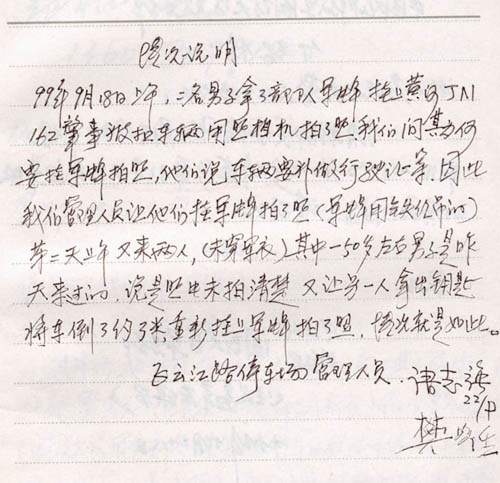 情况说明
99年9月18日上午,二名男子拿了部队军牌挂上黄河JN
162肇事被扣车辆用照相机拍了照我们问其为何
要挂军牌拍照,他们说车辆要补做行驶证等.因此
我们管理人员让他们挂军牌拍了照(军牌用铁丝吊的)
第二天上午又来两人,(未穿军衣)其中一50岁左右男子是昨
天来过的,说是照片未拍清楚 又让另一人拿出钥匙
将车倒了约3米重新挂上军牌拍了照,情况就是如此。
飞云江路停车场管理人员.诸志强
22/9
樊